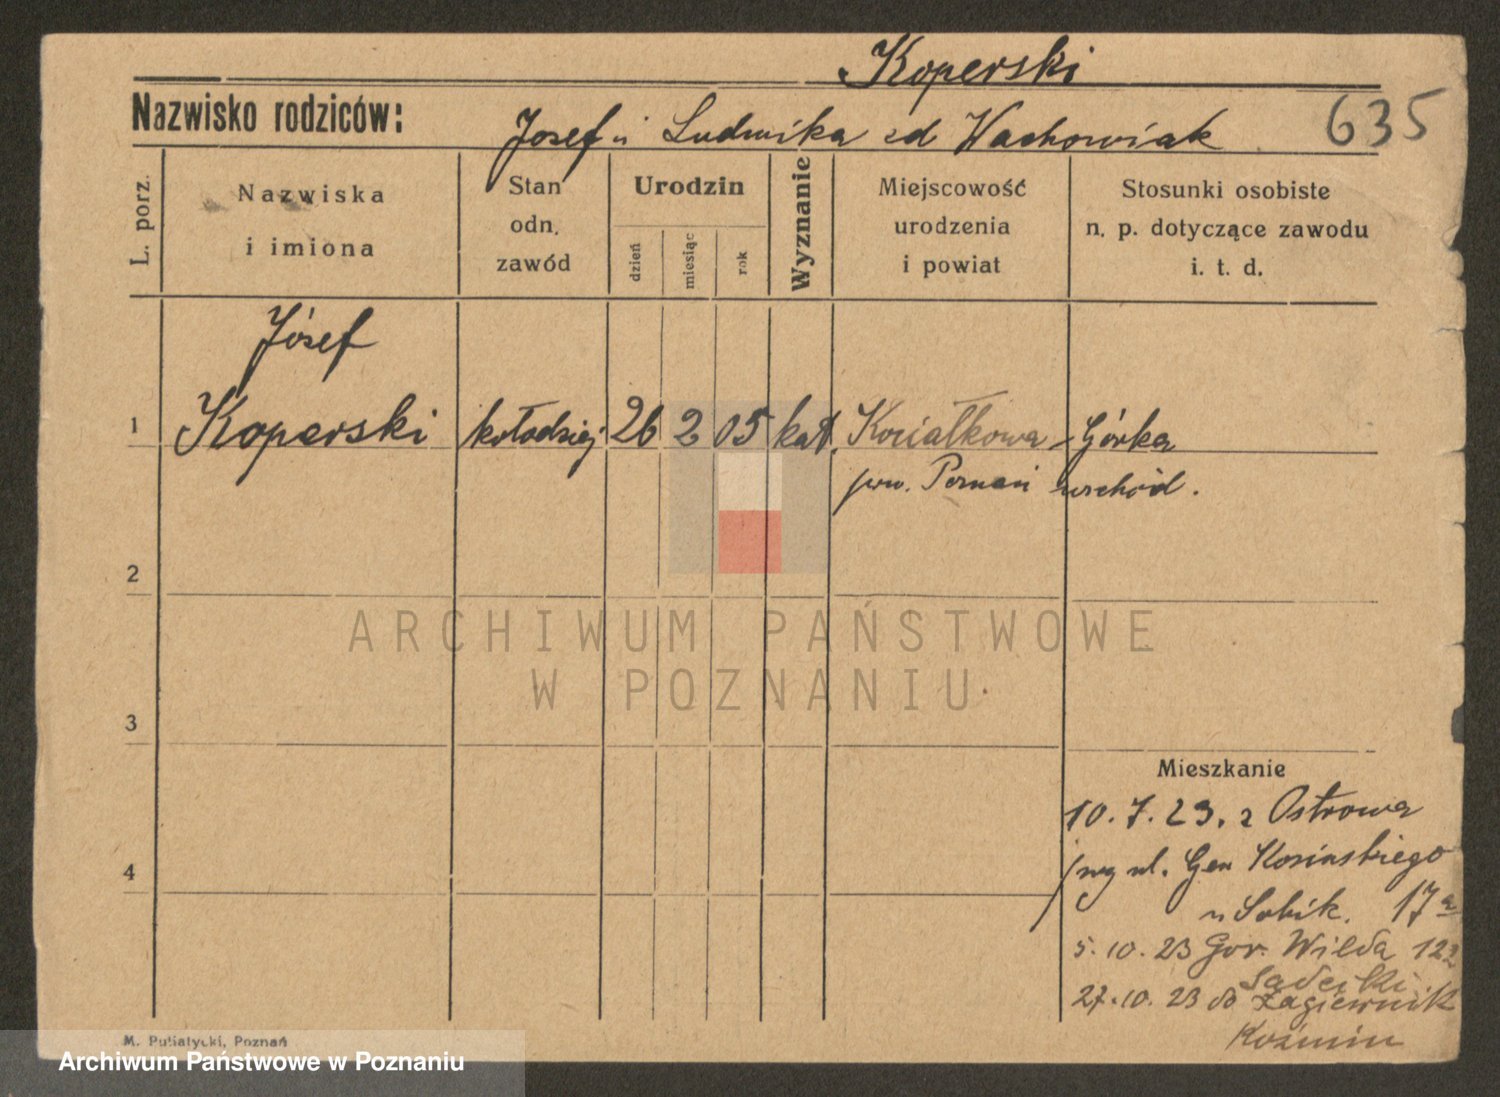 Koperski
Nazwisko rodziców:
Josef i Ludwika zd Wachowiak
635
L. porz.
Nazwiska
i imiona
Stan
odn.
zawód
Urodzin
dzień
miesiąc
rok
Wyznanie
Miejscowość
urodzenia
i powiat
Stosunki osobiste
n. p. dotyczące zawodu
i. t. d.
Józef
1 Koperski kołodziej 26 2 05 kat. Koziałkowa - Górka
pow. Poznań wschód.
2
3
Mieszkanie
10. 7. 23. z Ostrowa
4
ul. Gen Kosińskiego
u Sobik. 17a
5. 10. 23 Gór. Wilda 122
Sadecki
27. 10. 23 do Łagiewnik
Koźmin
M. Putiatycki, Poznań
ARCHIWUM PAŃSTWOWE
W POZNANIU
Archiwum Państwowe w Poznaniu